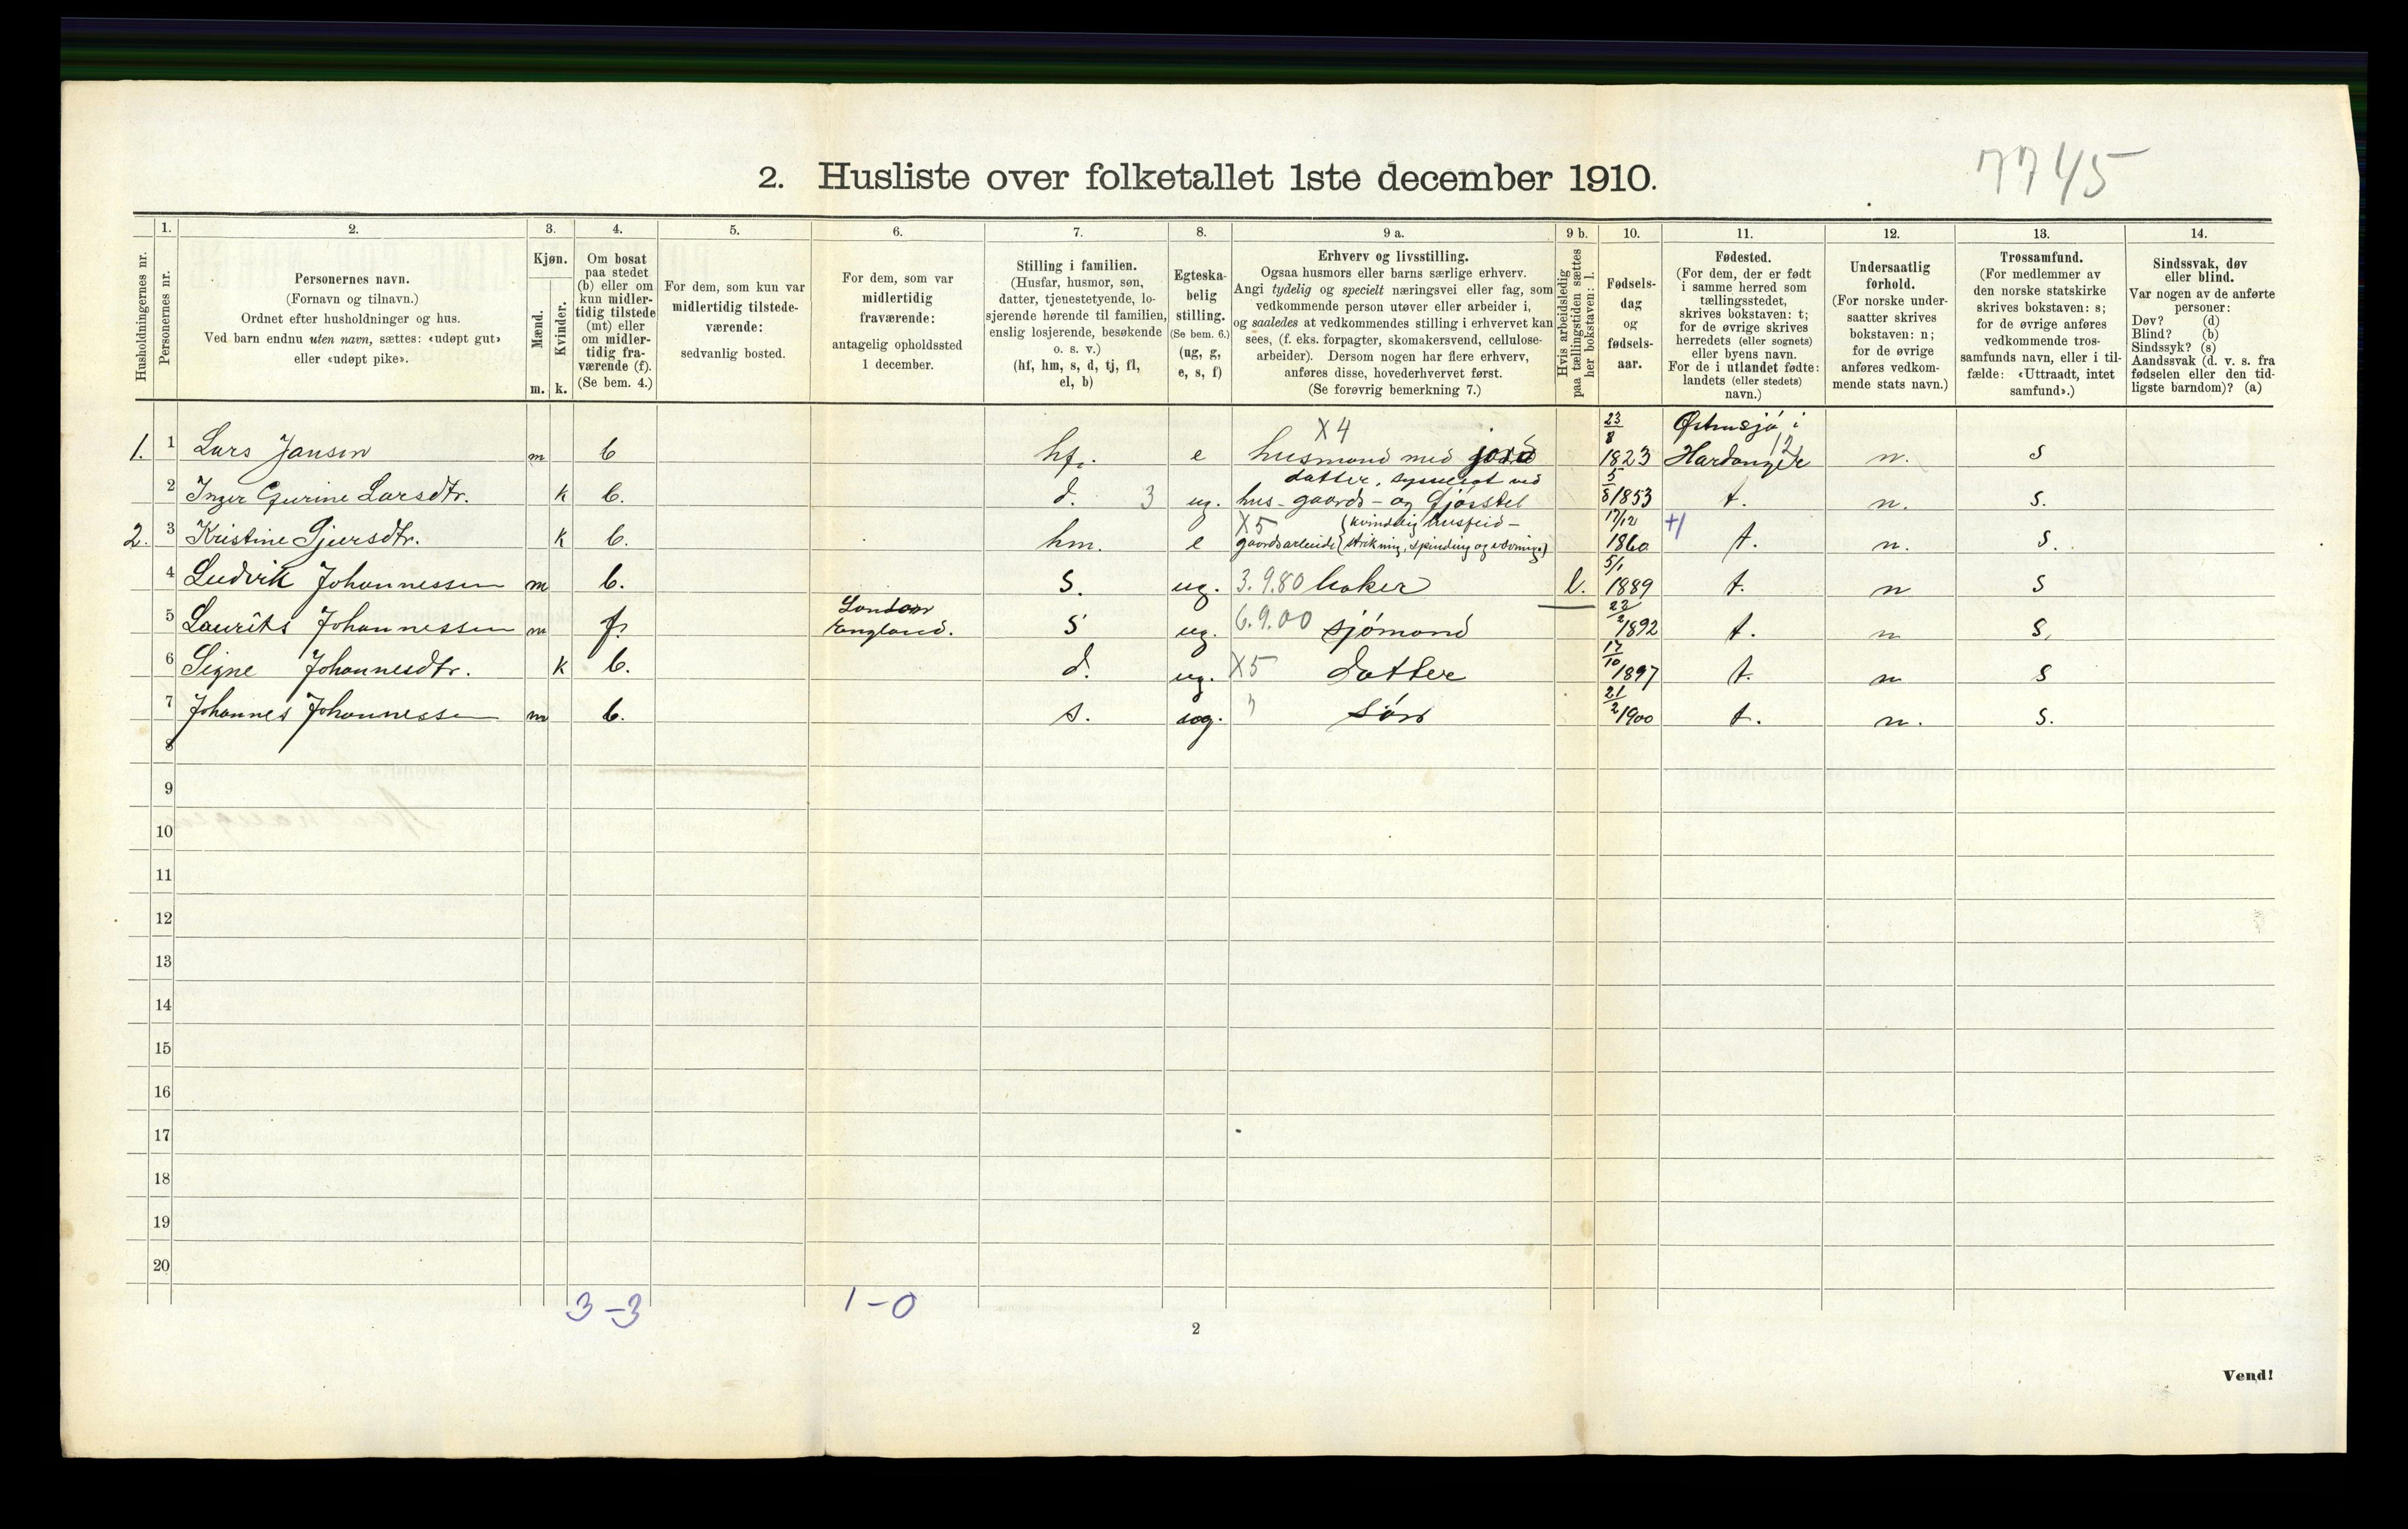 7745
2. Husliste over folketallet 1ste december 1910.
Husholdningernes nr.
1.
Personernes nr.
2.
Personernes navn.
(Fornavn og tilnavn.)
Ordnet efter husholdninger og hus.
Ved barn endnu uten navn, sættes: «udøpt gut»
eller «udøpt pike».
3.
Kjøn.
Mænd.
Kvinder.
m. k.
4.
Om bosat
paa stedet
(b) eller om
kun midler-
tidig tilstede
(mt) eller
om midler-
tidig fra-
værende (f).
(Se bem. 4.)
5.
For dem, som kun var
midlertidig tilstede-
værende:
sedvanlig bosted.
6.
For dem, som var
midlertidig
fraværende:
antagelig opholdssted
1 december.
7.
Stilling i familien.
(Husfar, husmor, søn,
datter, tjenestetyende, lo-
sjerende hørende til familien,
enslig losjerende, besøkende
o. s. v.)
(hf, hm, s, d, tj, fl,
el, b)
8.
Egteska-
belig
stilling.
(Se bem. 6.)
(ug, g,
e, s, f)
9 a.
Erhverv og livsstilling.
Ogsaa husmors eller barns særlige erhverv.
Angi tydelig og specielt næringsvei eller fag, som
vedkommende person utøver eller arbeider i,
og saaledes at vedkommendes stilling i erhvervet kan
sees, (f. eks. forpagter, skomakersvend, cellulose-
arbeider). Dersom nogen har flere erhverv,
anføres disse, hovederhvervet først.
(Se forøvrig bemerkning 7.)
9 b.
Hvis arbeidsledig
paa tællingstiden sættes
her bokstaven: l.
10.
Fødsels-
dag
og
fødsels-
aar.
11.
Fødested.
(For dem, der er født
i samme herred som
tællingsstedet,
skrives bokstaven: t;
for de øvrige skrives
herredets (eller sognets)
eller byens navn.
For de i utlandet fødte:
landets (eller stedets)
navn.)
12.
Undersaatlig
forhold.
(For norske under-
saatter skrives
bokstaven: n;
for de øvrige
anføres vedkom-
mende stats navn.)
13.
Trossamfund.
(For medlemmer av
den norske statskirke
skrives bokstaven: s;
for de øvrige anføres
vedkommende tros-
samfunds navn, eller i til-
fælde: «Uttraadt, intet
samfund».)
14.
Sindssvak, døv
eller blind.
Var nogen av de anførte
personer:
Døv? (d)
Blind? (b)
Sindssyk? (s)
Aandssvak (d. v. s. fra
fødselen eller den tid-
ligste barndom)? (a)
1. 1 Lars Jansen m b hf. e X4 husmand med jord 23/8 1823 i Hardanger 12 n. s
2 Inger Gurine Larsdtr. k b. d. 3 ug. datter, sysselsat ved hus- gaards- og fjøsstel 5/8 1853 t. n. s.
2. 3 Kristine Gjersdtr. k b. hm. e X5 gaardsarbeide (kvindelig husflid- strikning, spinding og vævning) 17/12 1860 +1 t. n. s.
4 Ludvik Johannessen m b. s. ug. 3.9.80 baker l. 5/1 1889 t. n s
5 Laurits Johannessen m f. London England. s ug. 6.9.00 sjømand 22/2 1892 t. n s.
6 Signe Johannesdtr. k b. d. ug. X5 datter 17/10 1897 t. n s
7 Johannes Johannessen m b. s. ug. søn 21/2 1900 t. n. s.
8
9
10
11
12
13
14
15
16
17
18
19
20
3-3
1-0
2
Vend!